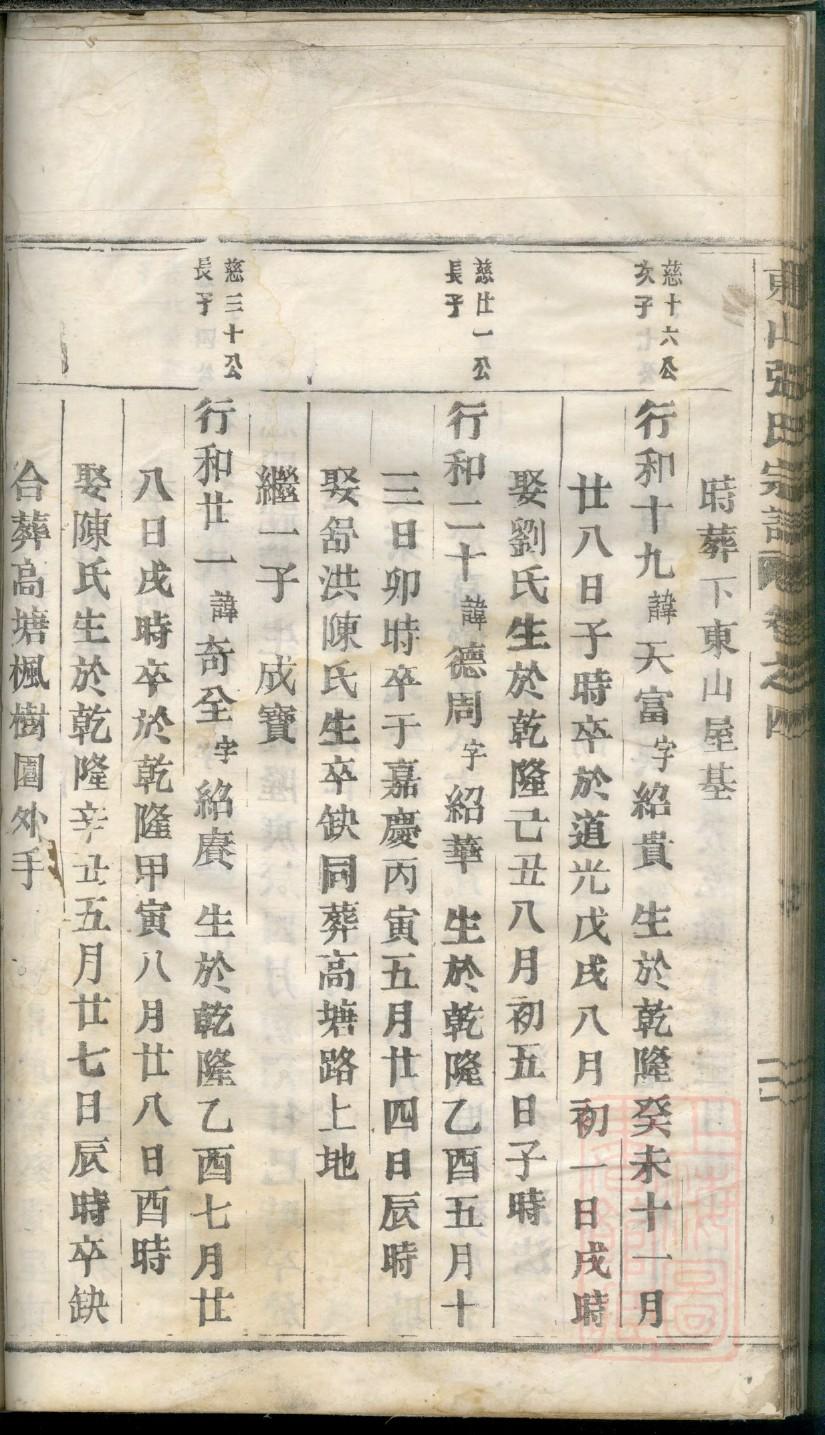 東山張氏宗譜卷之四
時葬下東山屋基
慈十六公
次子
行和十九諱天富字紹貴生於乾隆癸未十一月
廿八日子時卒於道光戊戌八月初一日戌時
娶劉氏生於乾隆己丑八月初五日子時
慈廿一公
長子
行和二十諱德周字紹華生於乾隆乙酉五月十
三日卯時卒于嘉慶丙寅五月廿四日辰時
娶舒洪陳氏生卒缺同葬高塘路上地
繼一子 成寶
慈三十公
長子
行和廿一諱奇全字紹賡生於乾隆乙酉七月廿
八日戌時卒於乾隆甲寅八月廿八日酉時
娶陳氏生於乾隆辛丑五月廿七日辰時卒缺
合葬高塘楓樹園外手